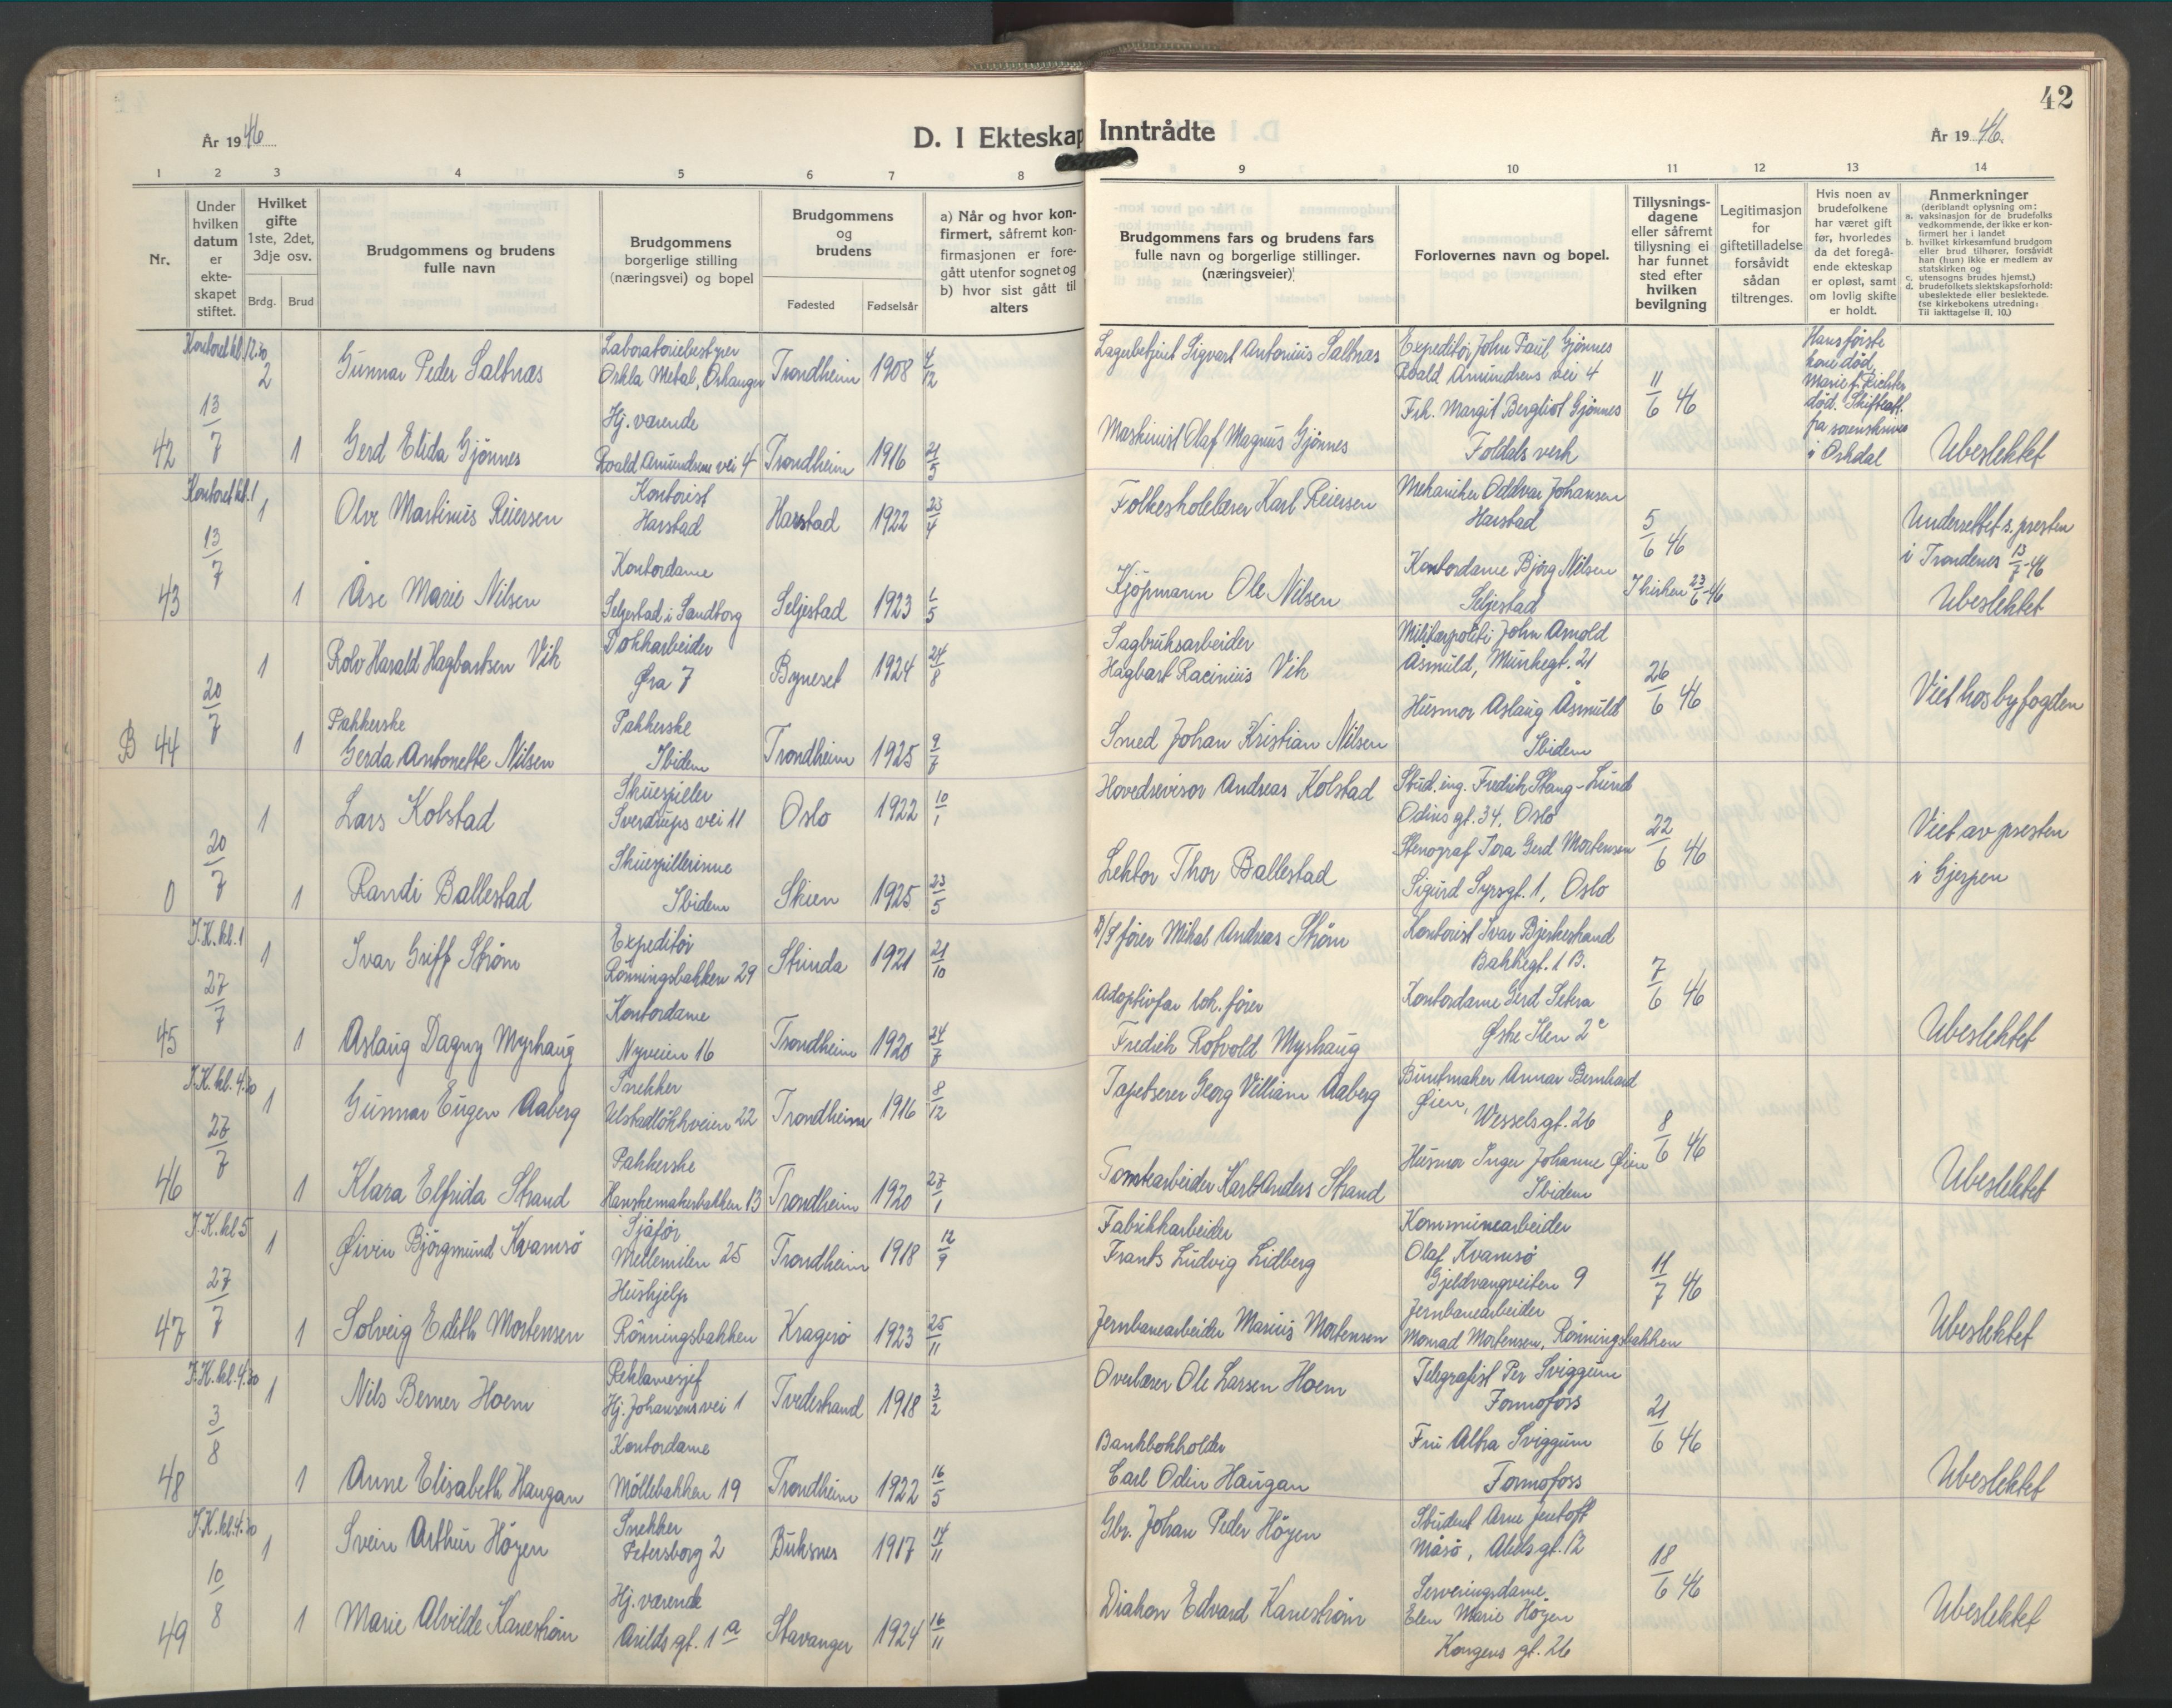 42
År 1946
D. I Ekteskap Inntrådte
År 1946.
1 2 3 4 5 6 7 8 9 10 11 12 13 14
Nr.
Under hvilken datum er ekteskapet stiftet.
Hvilket gifte 1ste, 2det, 3dje osv.
Brdg. Brud
Brudgommens og brudens fulle navn
Brudgommens borgerlige stilling (næringsvei) og bopel
Brudgommens og brudens
Fødested Fødselsår
a) Når og hvor konfirmert, såfremt konfirmasjonen er foregått utenfor sognet og
b) hvor sist gått til alters
Brudgommens fars og brudens fars fulle navn og borgerlige stillinger. (næringsveier)
Forlovernes navn og bopel.
Tillysningsdagene eller såfremt tillysning ei har funnet sted efter hvilken bevilgning
Legitimasjon for giftetilladelse forsåvidt sådan tiltrenges.
Hvis noen av brudefolkene har været gift før, hvorledes da det foregående ekteskap er opløst, samt om lovlig skifte er holdt.
Anmerkninger
(deriblandt oplysning om:
a. vaksinasjon for de brudefolks vedkommende, der ikke er konfirmert her i landet
b. hvilket kirkesamfund brudgom eller brud tilhører, forsåvidt han (hun) ikke er medlem av statskirken og
c. utensogns brudes hjemst.)
d. brudefolkets slektskapsforhold: ubeslektede eller beslektede.
(se kirkebokens utredning: Til iakttagelse II, 10.)
Kontoret kl. 12.30
42 13/7 2 Gunnar Peder Saltnæs
Laboratoriebestyrer
Orkla Metal, Orkanger
Trondheim 1908 4/12
Lagerbetjent Sigvart Antonius Saltnæs
Expeditör John Paul Gjönnes
Roald Amundsens vei 4
11/6 46
Hans første
kone død,
Marie f. Richter
død. Skifteatt.
fra sorenskriver
i Orkdal
1 Gerd Elida Gjönnes
Hj. værende
Roald Amundsens vei 4
Trondheim 1916 21/5
Maskinist Olaf Magnus Gjönnes
Frk. Margit Bergliot Gjönnes
Foldals verk
Ubeslektet
Kontoret kl. 1
43 13/7 1 Olve Martinius Reiersen
Kontorist
Harstad
Harstad 1922 23/4
Folkeskolelærer Karl Reiersen
Mekaniker Oddvar Johansen
Harstad
5/6 46
Undersettet s. presten
i Trondenes 13/7-46
1 Åse Marie Nilsen
Kontordame
Seljestad i Sandtorg
Seljestad 1923 1/5
Kjöpmann Ole Nilsen
Kontordame Björg Nilsen
Seljestad
I kirken 23/6-46
Ubeslektet
B 44 20/7 1 Rolv Harald Hagbartsen Vik
Dokkarbeider
Øra 7
Byneset 1924 24/8
Sagbruksarbeider
Hagbart Racinius Vik
Militærpoliti John Arnold
Åsmuld, Munkegt. 21
26/6 46
Viet hos byfogden
Pakkerske
1 Gerda Antonette Nilsen
Pakkerske
Ibidem
Trondheim 1925 9/7
Smed Johan Kristian Nilsen
Husmor Aslaug Åsmuld
Ibidem
0 20/7 1 Lars Kolstad
Skuespiller
Sverdrups vei 11
Oslo 1922 10/1
Hovedrevisor Andreas Kolstad
Stud. ing. Fredrik Stang-Lund
Odins gt. 34, Oslo
22/6 46
Viet av presten
i Gjerpen
1 Randi Ballestad
Skuespillerinne
Ibidem
Skien 1925 23/5
Lektor Thor Ballestad
Stenograf Tora Gerd Mortensen
Sigurd Syrsgt. 1, Oslo
I.K. kl. 1
45 27/7 1 Ivar Griff Ström
Expeditör
Rönningsbakken 29
Strinda 1921 21/10
D/S förer Mikal Andreas Ström
Kontorist Ivar Bjerkestrand
Bakkegt. 1 B.
7/6 46
1 Aslaug Dagny Myrhaug
Kontordame
Nyveien 16
Trondheim 1920 24/7
Adoptivfar lok. förer
Fredrik Rotvold Myrhaug
Kontordame Gerd Setra
Østre Ilen 2c
Ubeslektet
I.K. kl. 4.30
46 27/7 1 Gunnar Eugen Aaberg
Snekker
Ulstadlökkveien 22
Trondheim 1916 8/12
Tapetserer Georg Villiam Aaberg
Buntmaker Annar Bernhard
Øien,
Wesselsgt. 26
8/6 46
1 Klara Elfrida Strand
Pakkerske
Hanskemakerbakken 13
Trondheim 1920 27/1
Tomtearbeider Karl Anders Strand
Husmor Inger Johanne Øien
Ibidem
Ubeslektet
I.K. kl 5
47 27/7 1 Øivin Björgmund Kvamsö
Sjåför
Mellemilen 25
Trondheim 1918 12/9
Fabrikkarbeider
Frants Ludvig Lidberg
Kommunearbeider
Olaf Kvamsö
Gjeldvangveiten 9
11/7 46
1 Solveig Edith Mortensen
Hushjelp
Rönningsbakken
Kragerö 1923 25/11
Jernbanearbeider Marius Mortensen
Jernbanearbeider
Monrad Mortensen, Rönningsbakken
Ubeslektet
I.K. kl. 4.30
48 3/8 1 Nils Berner Hoem
Reklamesjef
Hj. Johansens vei 1
Tvedestrand 1918 3/2
Overlærer Ole Larsen Hoem
Telegrafist Per Sviggum
Formofoss
21/6 46
1 Anne Elisabeth Haugan
Kontordame
Möllebakken 19
Trondheim 1922 16/5
Bankbokholder
Carl Odin Haugan
Fru Altra Sviggum
Formofoss
Ubeslektet
I.K. kl. 4.30
49 10/8 1 Svein Arthur Höyen
Snekker
Petersborg 2
Buksnes 1917 14/11
Gbr. Johan Peder Höyen
Student Arne Jentoft
Måsö, Abels gt. 12
18/6 46
1 Marie Alvilde Kaneström
Hj. værende
Arilds gt. 1 a
Stavanger 1924 16/11
Diakon Edvard Kaneström
Serveringsdame
Elen Marie Höyen
Kongens gt. 26
Ubeslektet